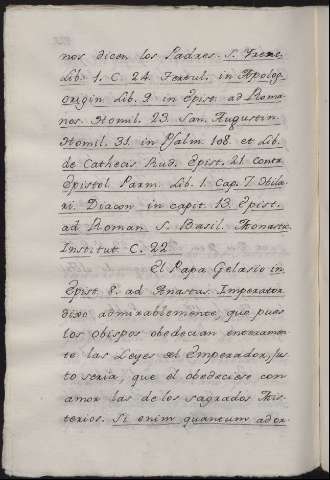 nos dicen los Padres. S. Irene.
Lib. 1. C. 24. Tertul. in Apolog.
Origin. Lib. 9. in Epist. ad Roma-
nos. Homil. 23. San. Augustin.
Homil. 31. in Psalm. 108. et Lib.
de Cathecis Rud. Epist. 21. Contra
Epistol. Parm. Lib. 1. Cap. 7. Hila-
ri. Diacon. in capit. 13. Epist.
ad Roman. S. Basil. Monastic.
Institut. C. 22
El Papa Gelasio in
Epist. 8. ad Anastas. Imperator.
dixo admirablemente, que pues
los obispos obedecian enteramen-
te las Leyes del Emperador, jus-
to seria, que el obedeciese con
amor las de los sagrados Mis-
terios. Si enim quantum ador-